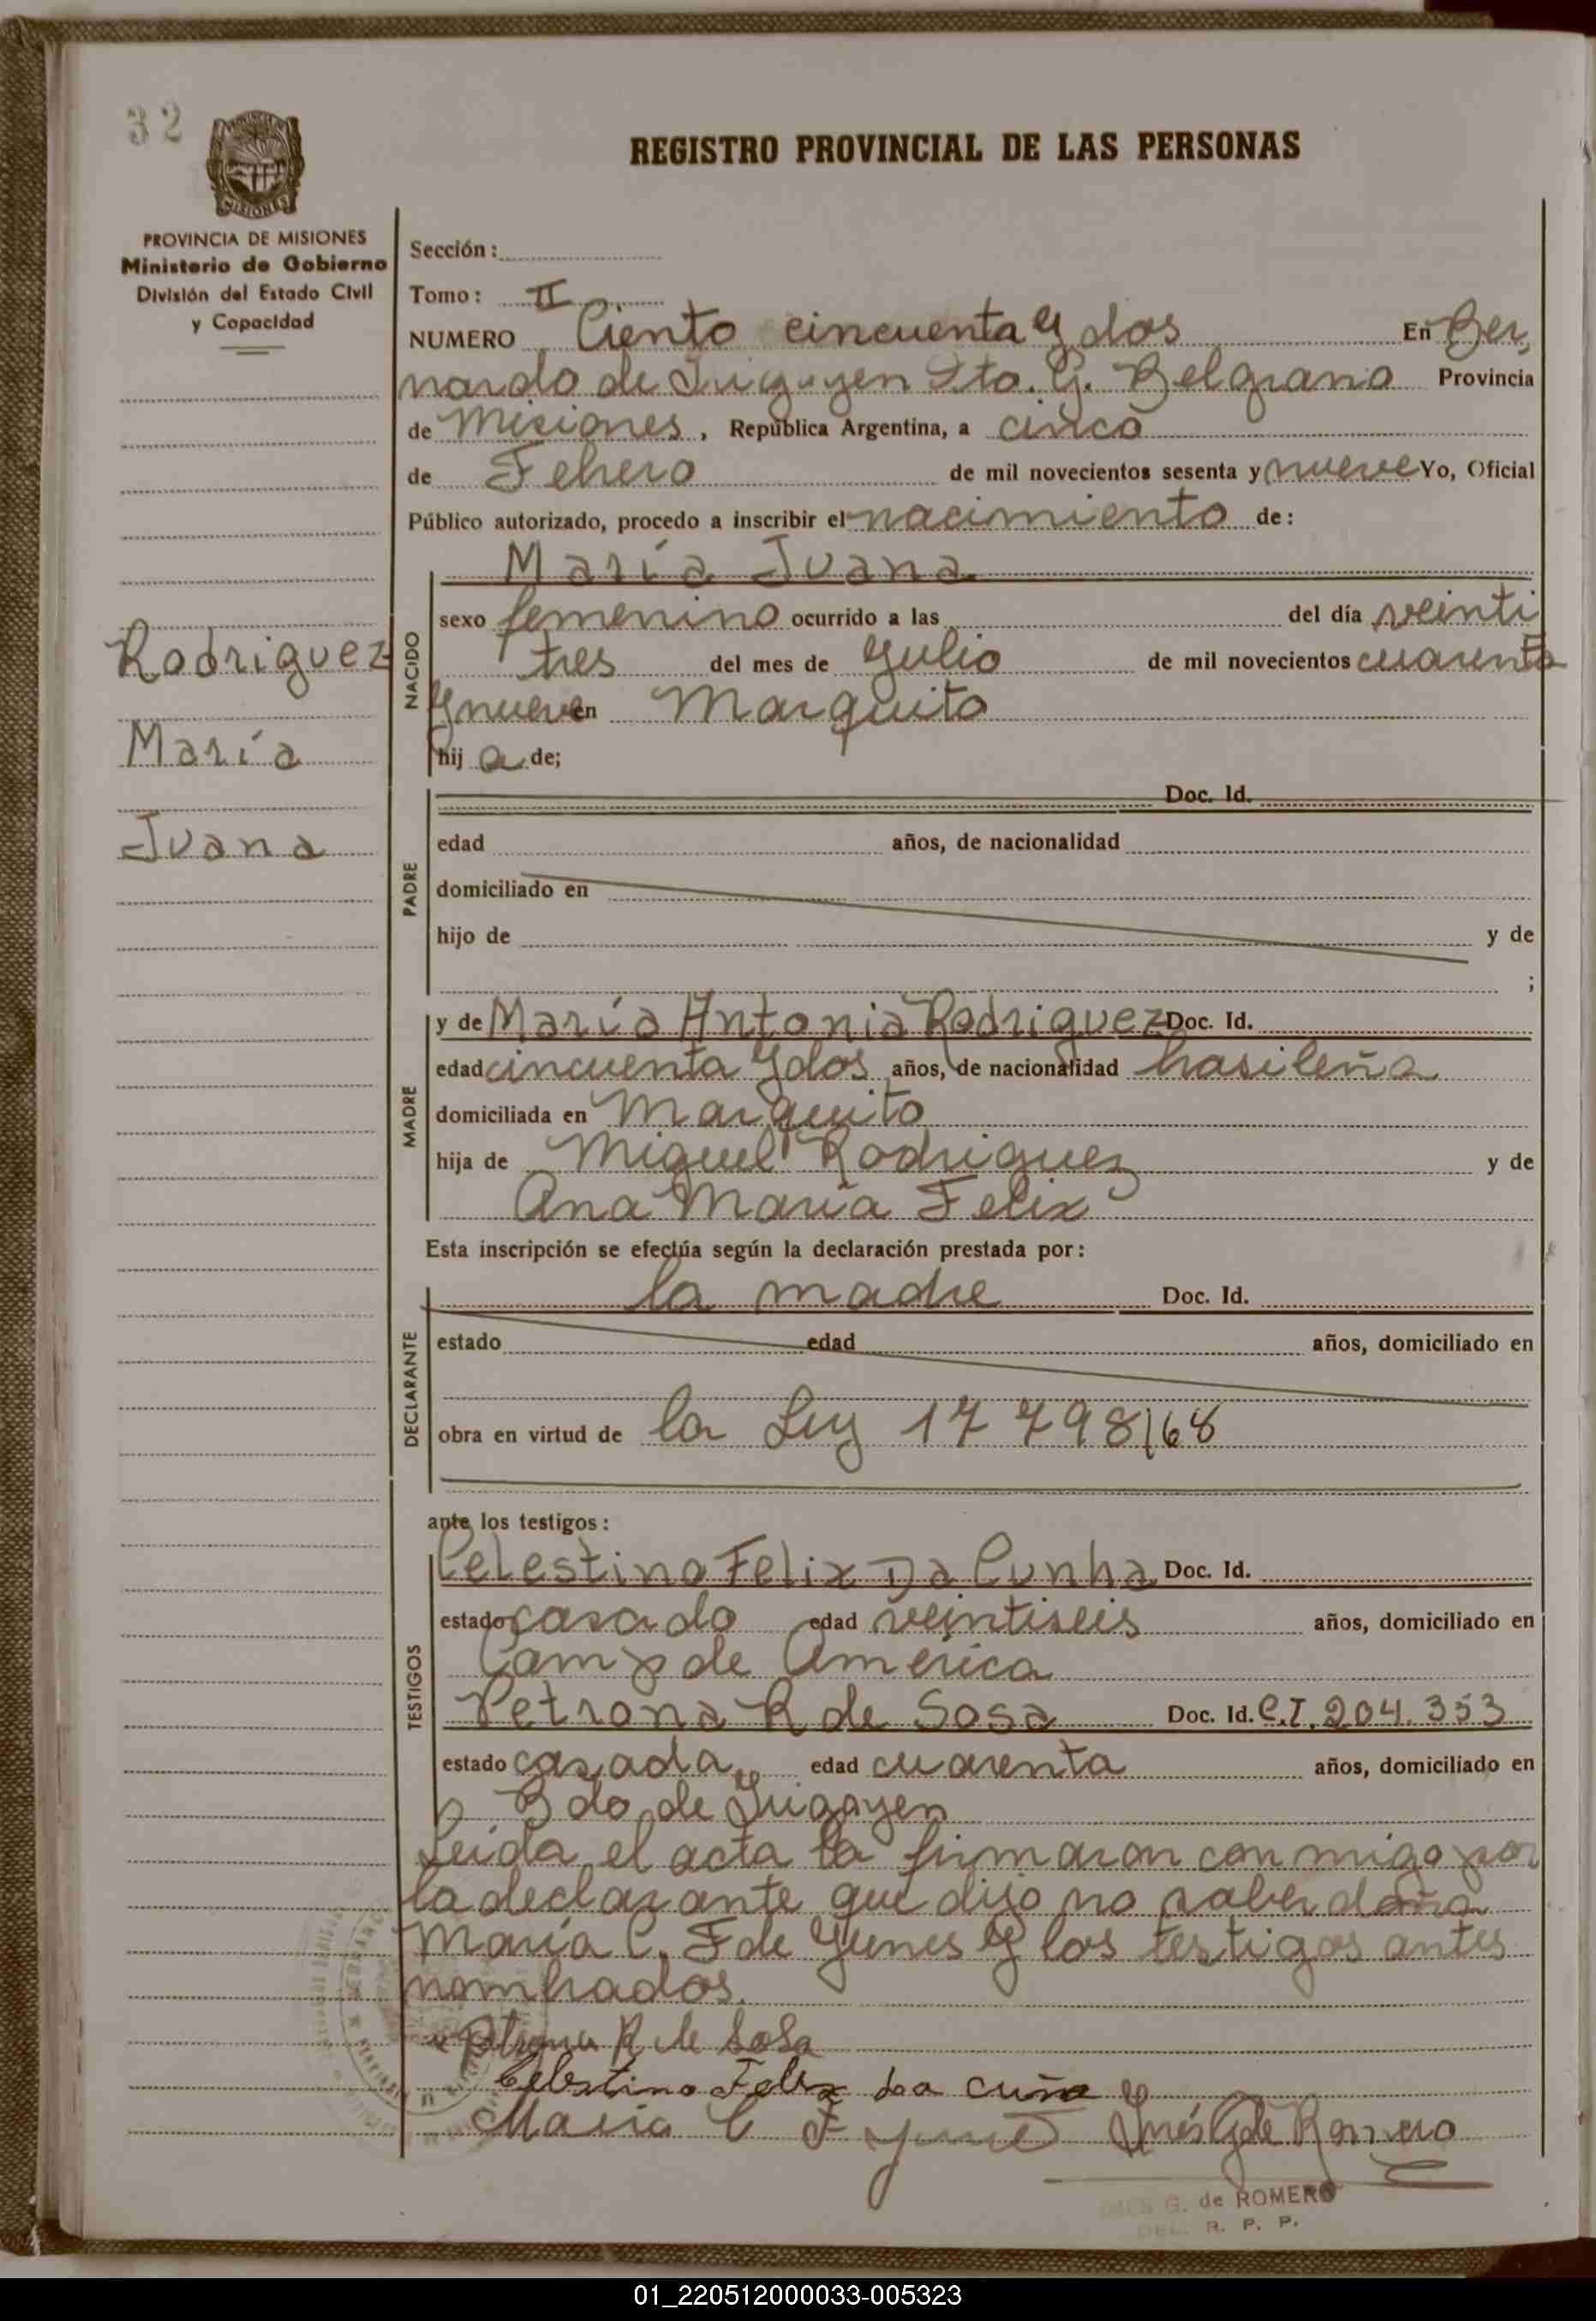 32
REGISTRO PROVINCIAL DE LAS PERSONAS
MISIONES
PROVINCIA DE MISIONES
Ministerio de Gobierno
División del Estado Civil
y Capacidad
Rodriguez
María
Juana
Sección:
Tomo: II
NUMERO Ciento cincuenta y dos En Ber,
nardo de Irigoyen Dto. G. Belgrano Provincia
de Misiones, República Argentina, a cinco
de Febrero de mil novecientos sesenta y nueve Yo, Oficial
Público autorizado, procedo a inscribir el nacimiento de:
María Juana
NACIDO
sexo femenino ocurrido a las del día veinti
tres del mes de Julio de mil novecientos cuarenta
y nueve en Marquito
hij a de;
PADRE
Doc. Id.
edad años, de nacionalidad
domiciliado en
hijo de y de
;
MADRE
y de María Antonia Rodriguez Doc. Id.
edad cincuenta y dos años, de nacionalidad brasileña
domiciliada en Marquito
hija de Miguel Rodriguez y de
Ana María Felix
Esta inscripción se efectúa según la declaración prestada por:
DECLARANTE
la madre Doc. Id.
estado edad años, domiciliado en
obra en virtud de la Ley 17 798/68
ante los testigos:
TESTIGOS
Celestino Felix Da Cunha Doc. Id.
estado casado edad veintiseis años, domiciliado en
Campo de América
Petrona R de Sosa Doc. Id. C.I. 204.353
estado casada edad cuarenta años, domiciliado en
Bdo de Irigoyen
Leida el acta la firmaron con migo por
la declarante que dijo no saber doña
María C. F de Yunes y los testigos antes
nombrados.
Petrona R de Sosa
Celestino Felix da cuña
Maria C F Yunes Inés G de Romero
INES G. de ROMERO
DEL. R. P. P.
01_220512000033-005323